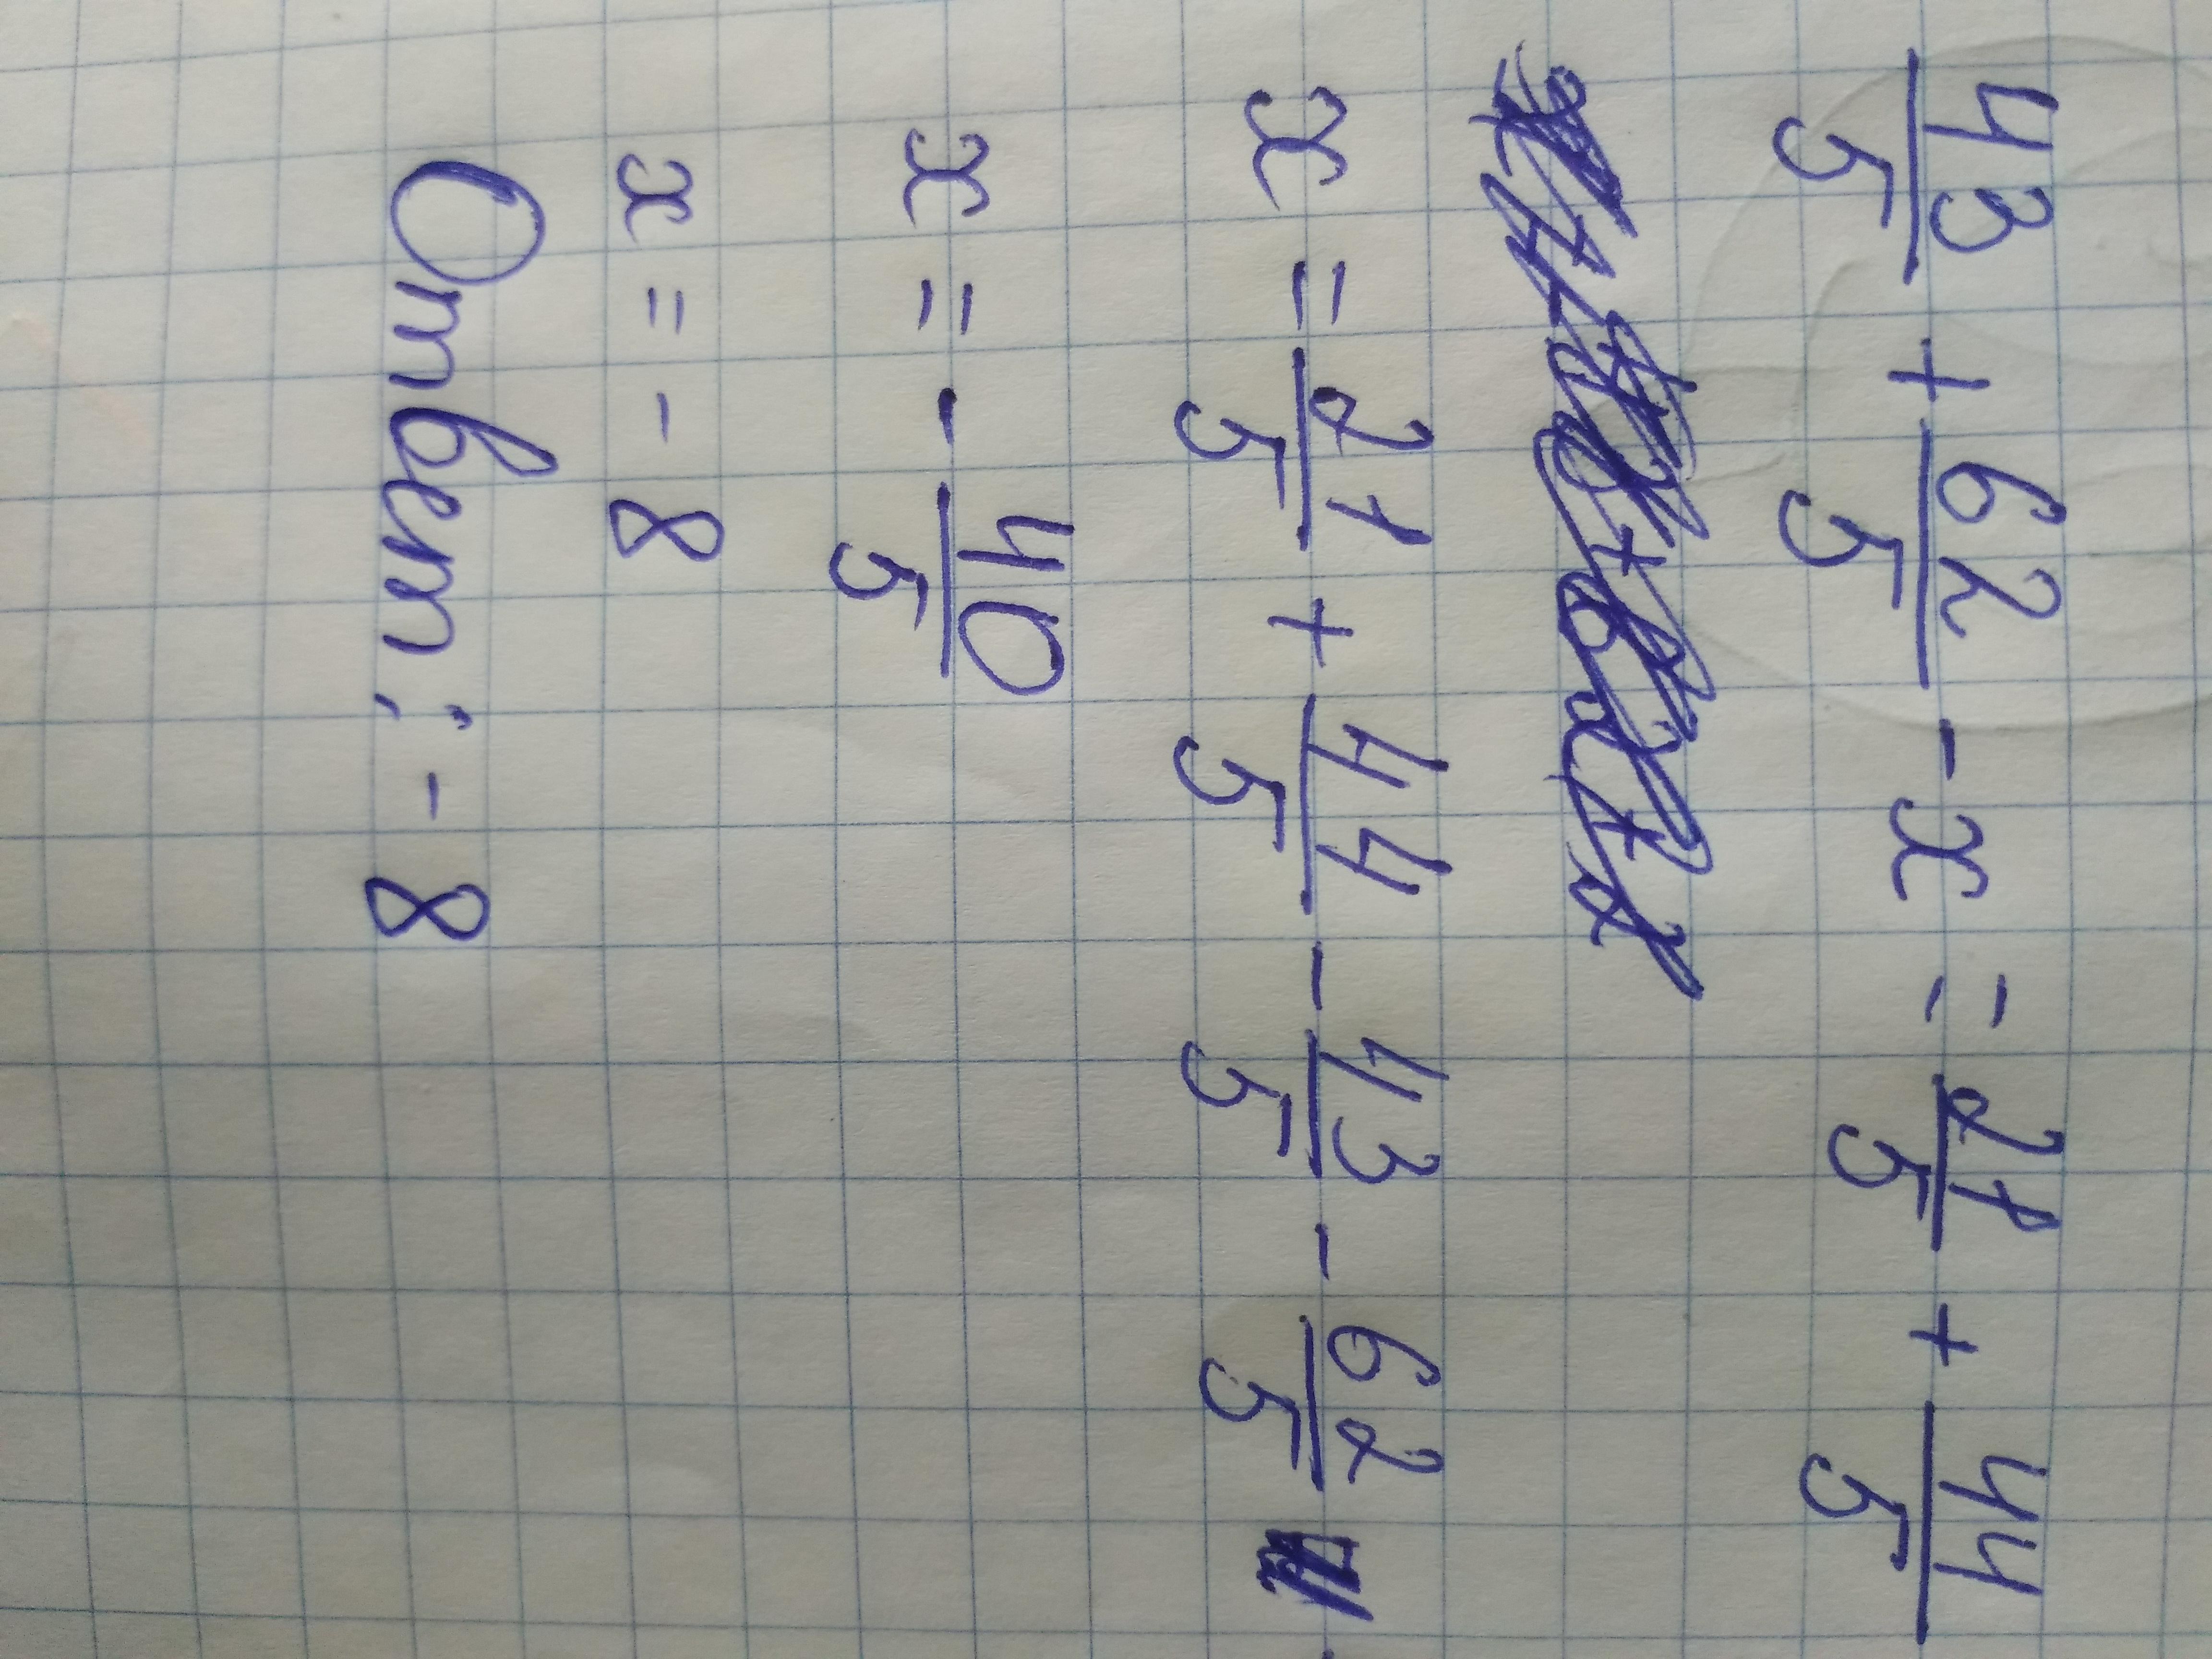 43/5 + 62/5 - x = 21/5 + 44/5
x = 21/5 + 44/5 - 43/5 - 62/5
x = - 40/5
x = - 8
Ответ: - 8